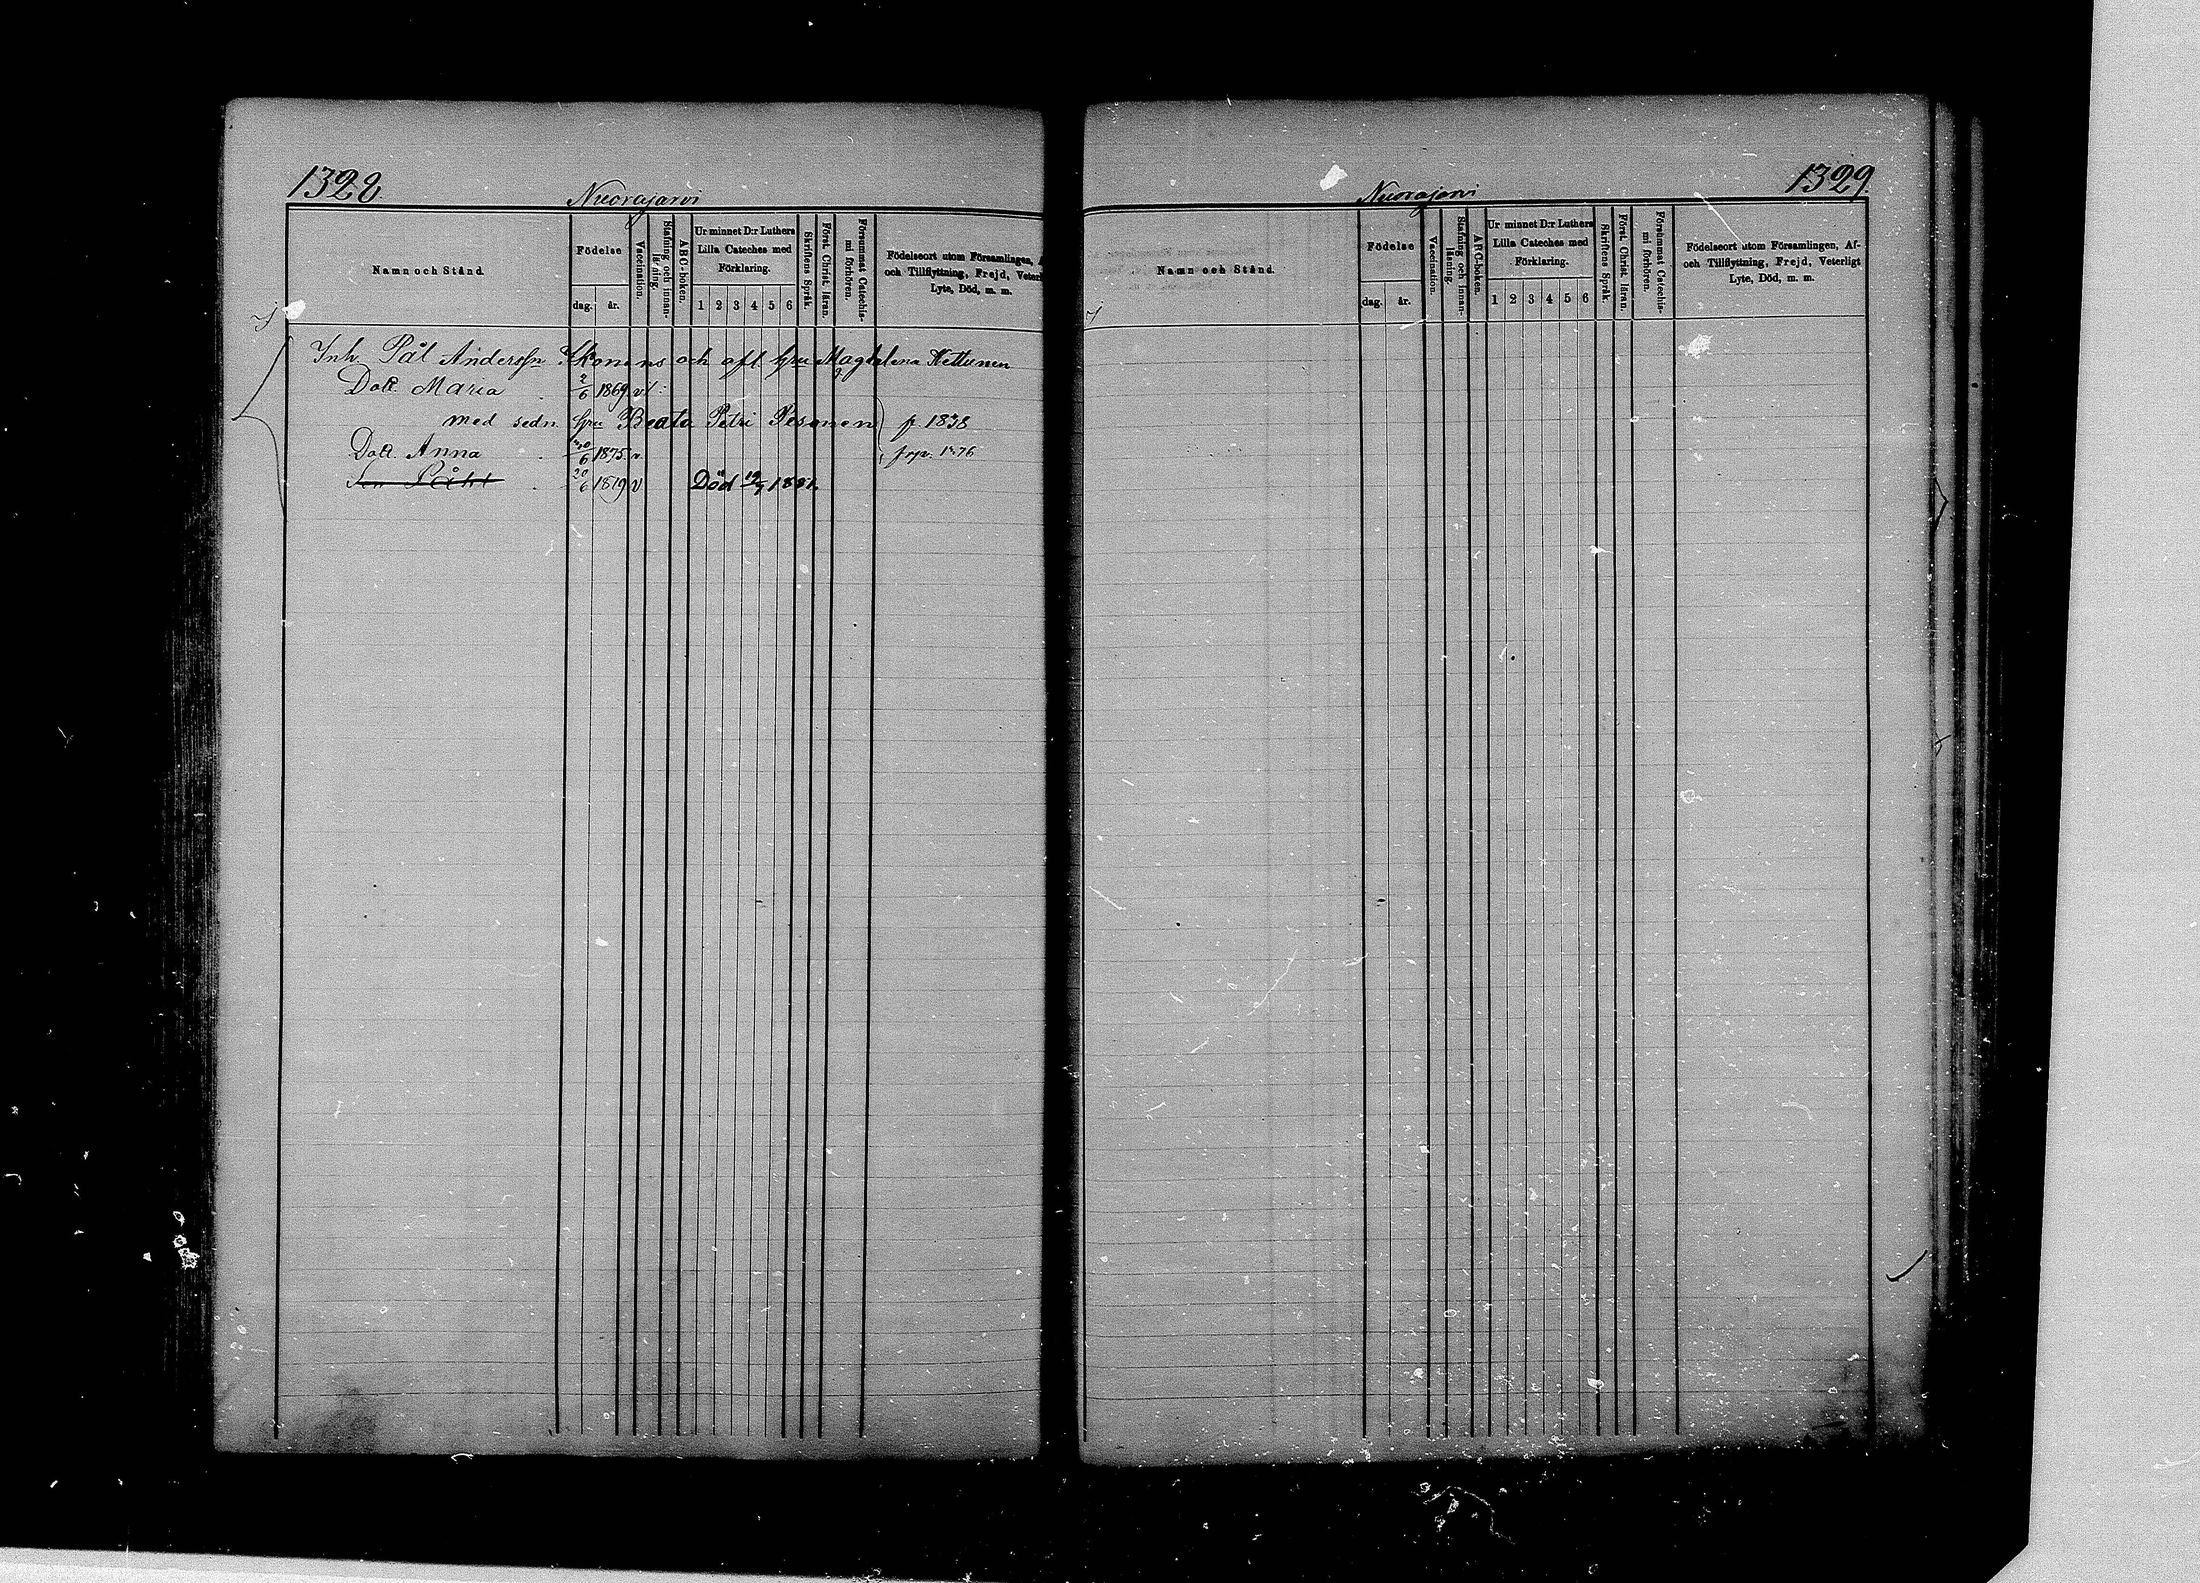 1328.
Nuorajarvi
Namn och Stånd.
Födelse
dag. år.
Vaccination.
Stafning och innan-
läsning.
ABC-boken.
Ur minnet D:r Luthers
Lilla Cateches med
Förklaring.
1 2 3 4 5 6
Skriftens Språk.
Först. Christ. läran.
Försummat Catechis-
mi förhören.
Födelseort utom Församlingen,
och Tillflyttning, Frejd,
Lyte, Död, m. m.
Inh. Pål Anderssn och afl. hru Magdalena Kettunen
Dott. Maria 2/6 1869 v
med sedn. hru Beata Petri Pesonen f. 1838
Dott. Anna 1875 v.
Son 20/6 1879 v Död 1881.
1329.
Nuorajarvi
Namn och Stånd.
Födelse
dag. år.
Vaccination.
Stafning och innan-
läsning.
ABC-boken.
Ur minnet D:r Luthers
Lilla Cateches med
Förklaring.
1 2 3 4 5 6
Skriftens Språk.
Först. Christ. läran.
Försummat Catechis-
mi förhören.
Födelseort utom Församlingen, Af-
och Tillflyttning, Frejd, Veterligt
Lyte, Död, m. m.